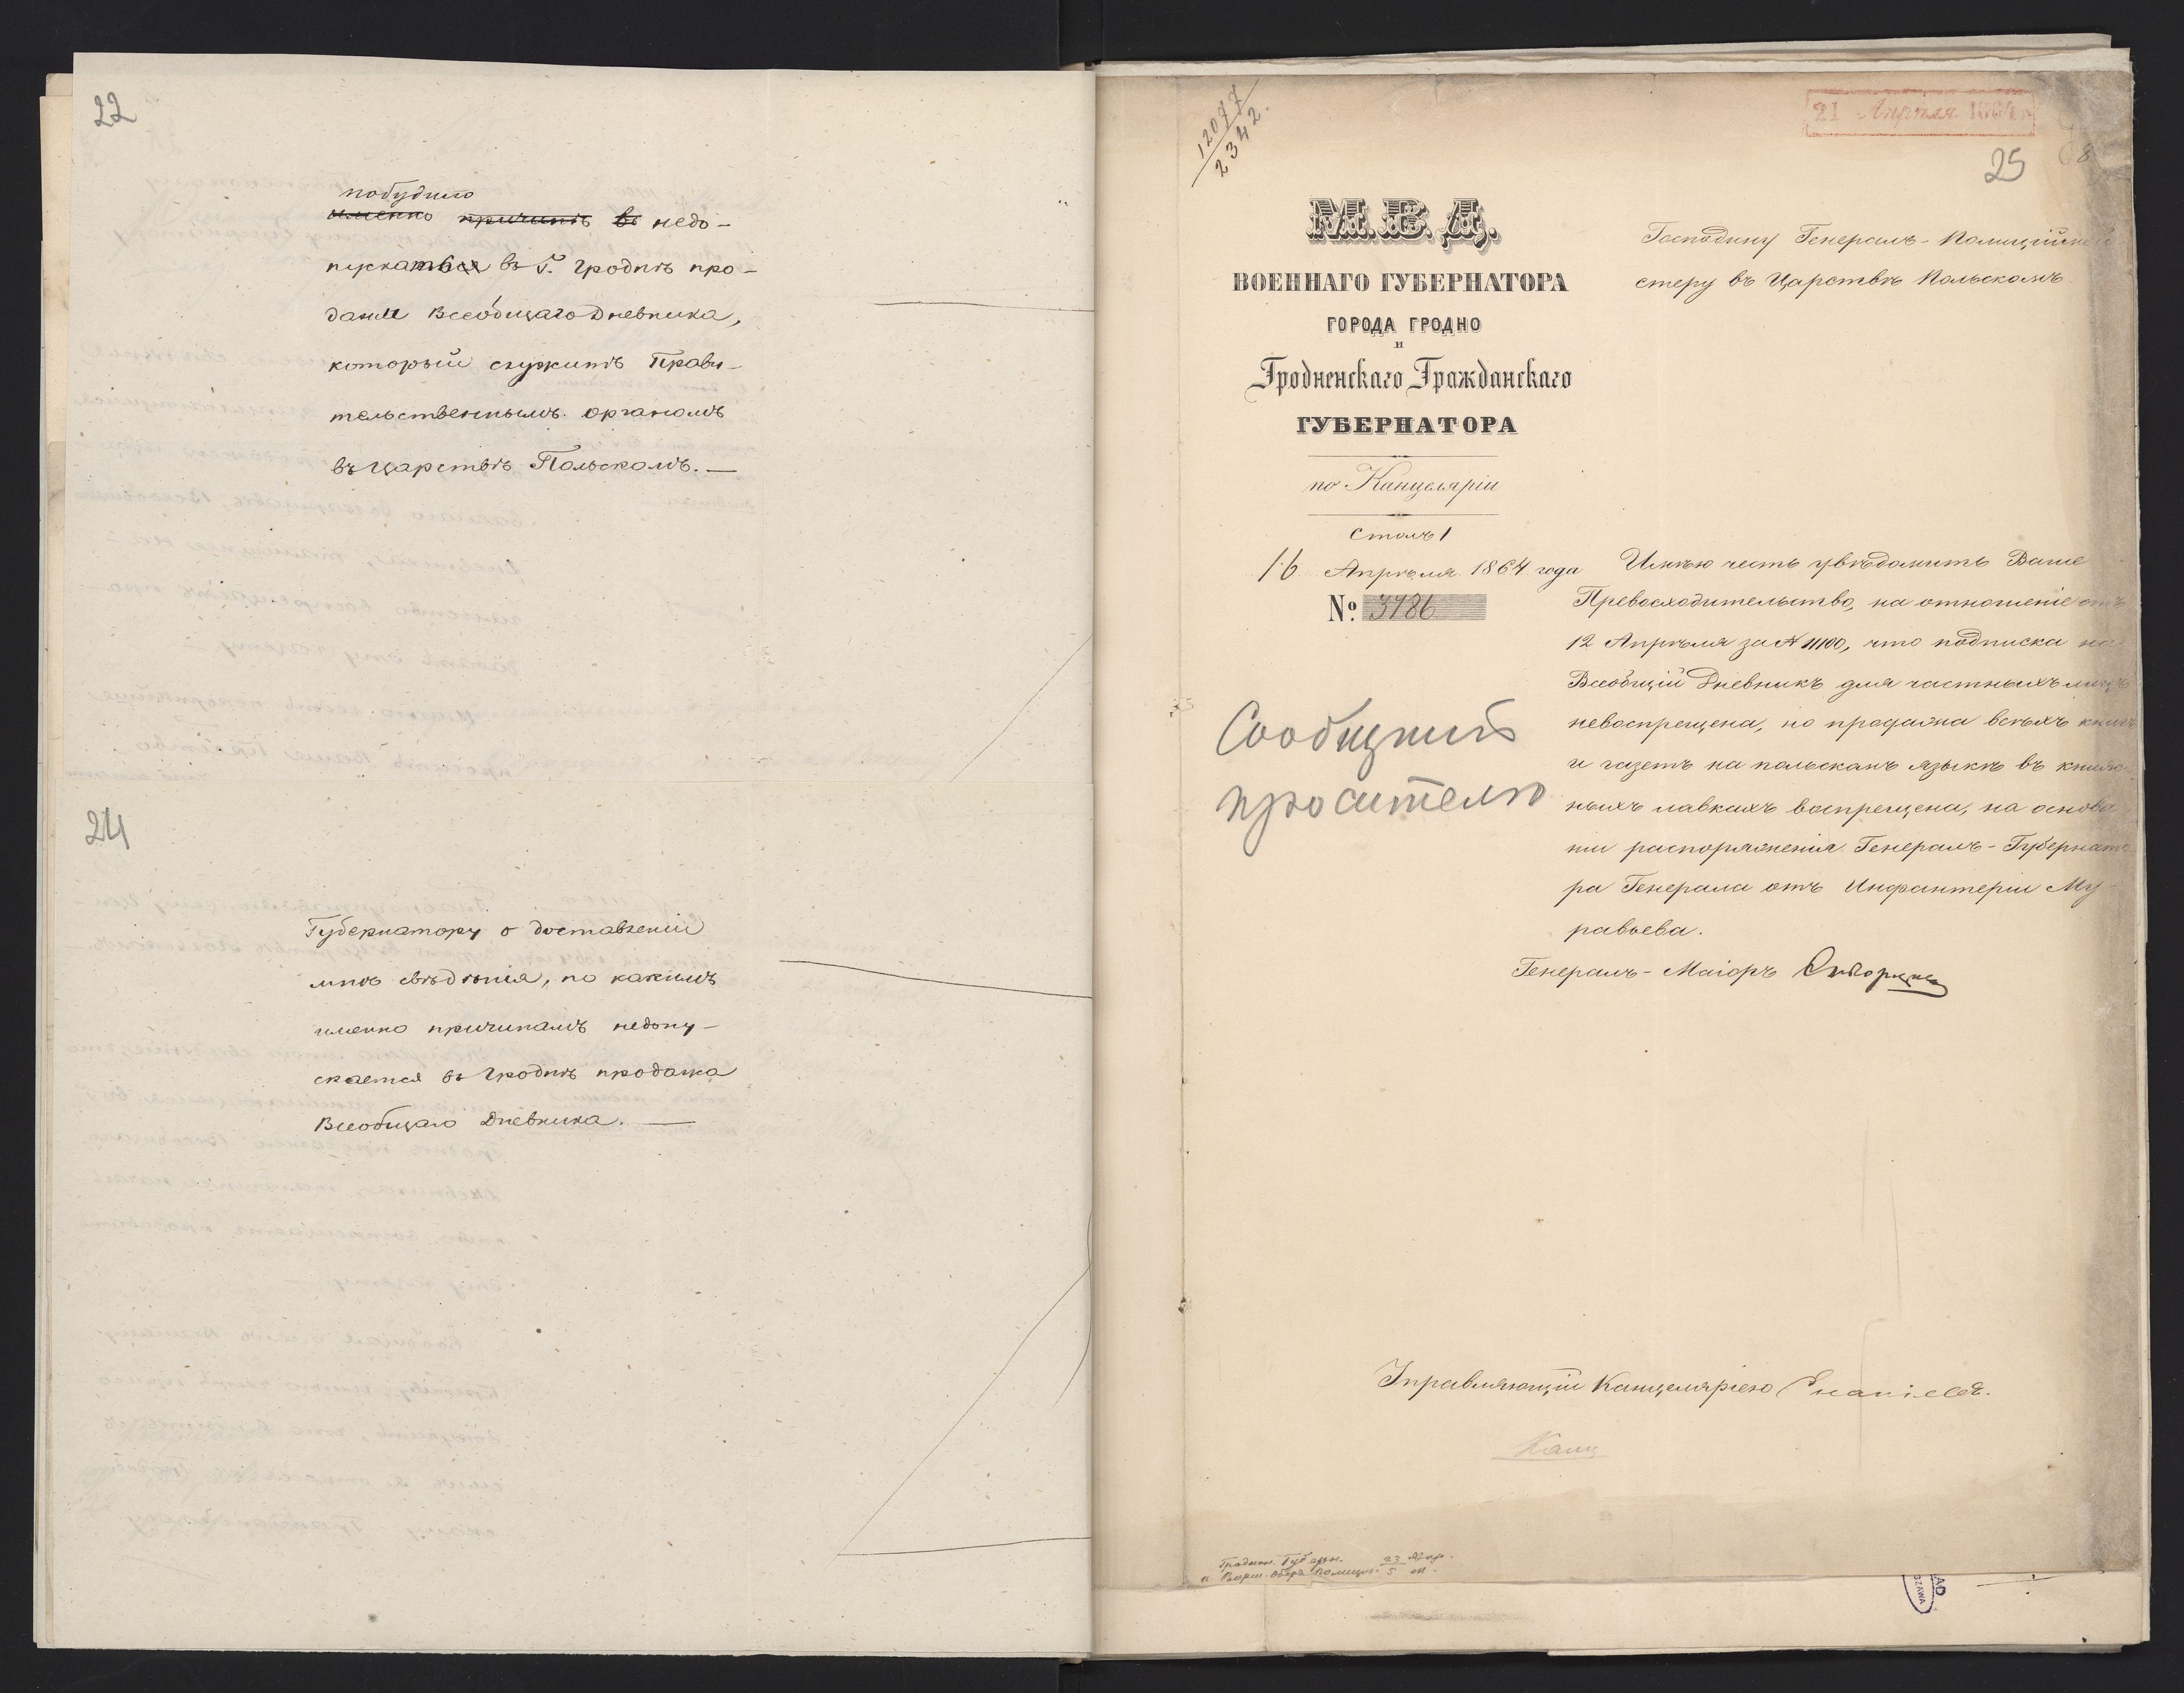 22
побудило
именно причинъ въ недо-
пускаться въ Г. Гроднѣ про-
дажи Всеобщаго Дневника,
который служитъ Прави-
тельственнымъ органомъ
въ Царствѣ Польскомъ. —
24
Губернатору о доставленіи
мнѣ свѣдѣнія, по какимъ
именно причинамъ недопу-
скается въ Гроднѣ продажа
Всеобщаго Дневника. —
12077
2342.
21 Апрѣля 1864
25
8
М.В.Д.
ВОЕННАГО ГУБЕРНАТОРА
ГОРОДА ГРОДНО
и
Гродненскаго Гражданскаго
ГУБЕРНАТОРА
по Канцеляріи
Столъ 1
16 Апрѣля 1864 года
№ 3786
Господину Генералъ-Полицiймей
стеру въ Царствѣ Польскомъ
Имѣю честь увѣдомить Ваше
Превосходительство, на отношеніе отъ
12 Апрѣля за № 11100, что подписка на
Всеобщій Дневникъ для частныхъ лицъ
невоспрещена, но продажа всѣхъ книгъ
и газетъ на польскомъ языкѣ въ книж-
ныхъ лавкахъ воспрещена, на основа
ніи распоряженія Генералъ-Губернато
ра Генерала отъ Инфантеріи Му-
равьева.
Генералъ-Маіоръ Скворцовъ
Сообщить
просителю
Управляющій Канцеляріею
Канц
Гродненс. Губерн. 23 Апр.
и Варш. Оберъ Полицм. 5 м.